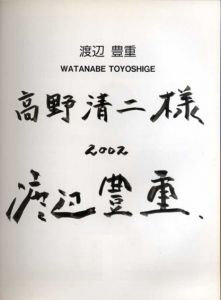 渡辺 豊重
WATANABE TOYOSHIGE
高野清二様
2002
渡辺豊重